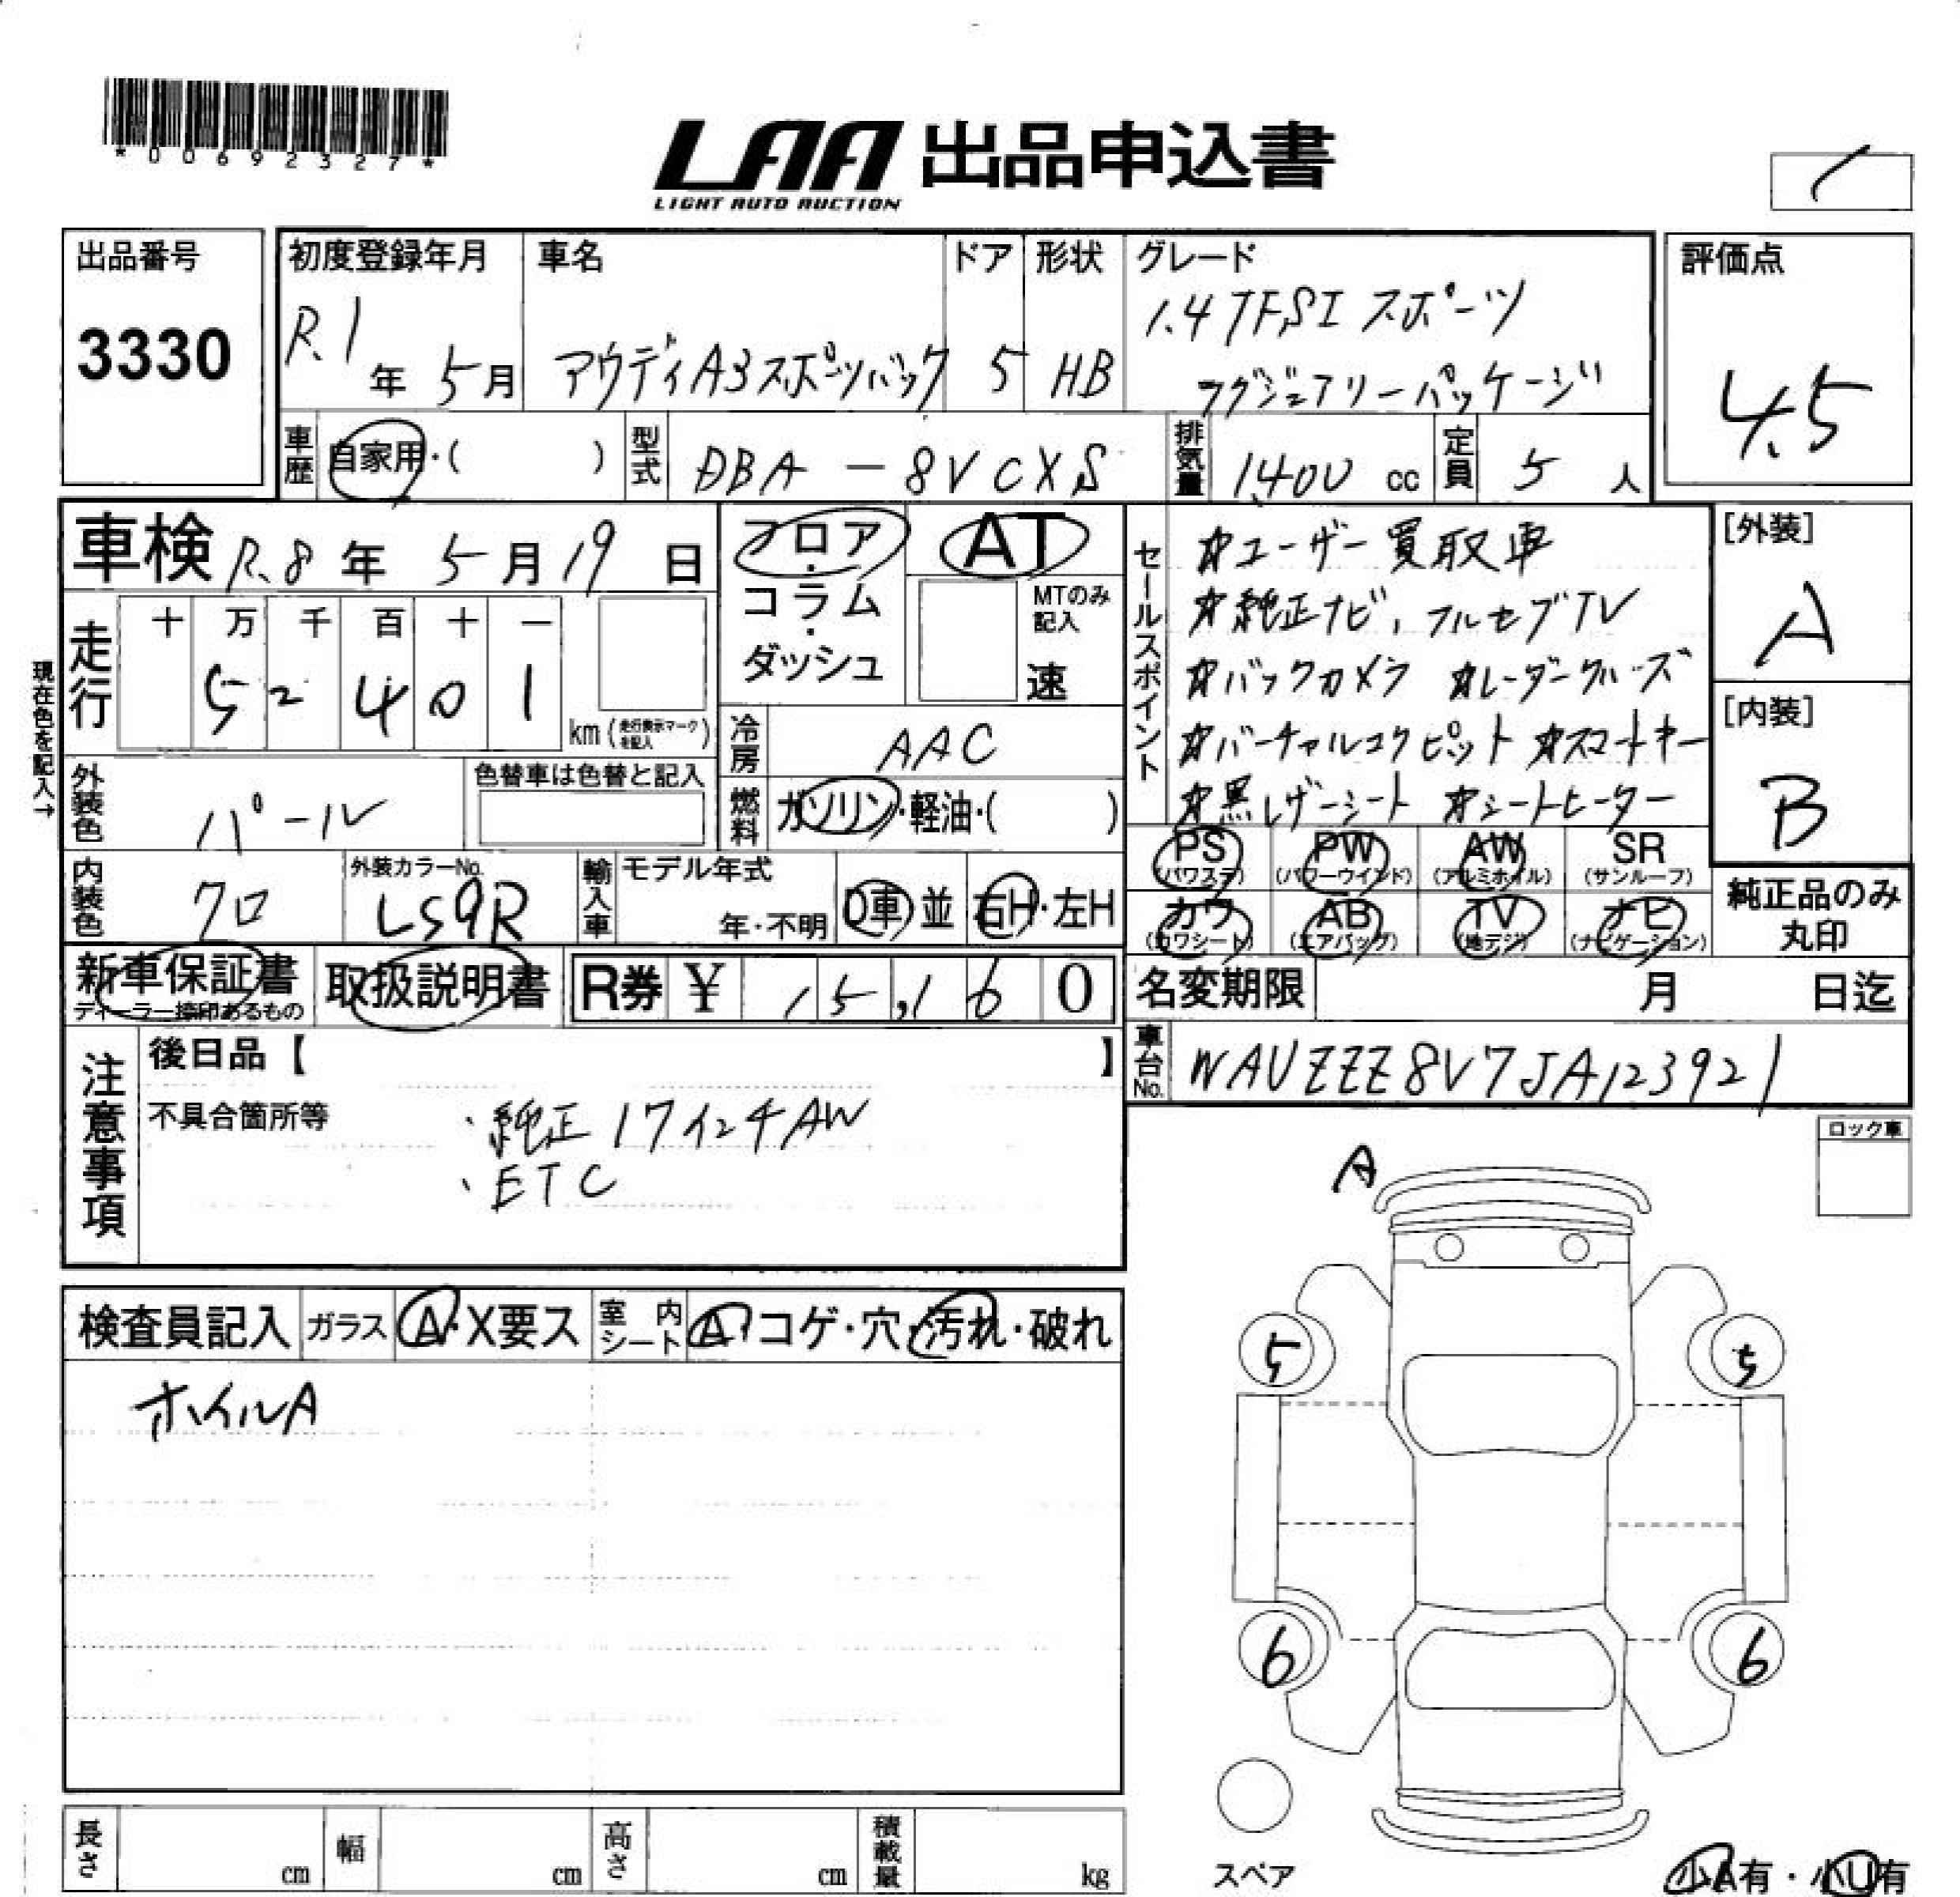 *00692327*
LAA 出品申込書
LIGHT AUTO AUCTION
出品番号
3330
初度登録年月
R.1年 5月
車名
アウディA3スポーツバック
ドア
5
形状
HB
グレード
1.4TFSI スポーツ
ラグジュアリーパッケージ
評価点
4.5
車歴
自家用・( )
型式
DBA-8VCXS
排気量
1,400 cc
定員
5 人
車検 R.8年 5月19日
フロア・コラム・ダッシュ
AT
MTのみ記入
速
セールスポイント
☆ユーザー買取車
☆純正ナビ、フルセグTV
☆バックカメラ ☆レーダークルーズ
☆バーチャルコクピット ☆スマートキー
☆黒レザーシート ☆シートヒーター
[外装]
A
[内装]
B
現在色を記入→
走行
十 万 千 百 十 一
5 2 4 0 1
km (走行表示マークを記入)
冷房
AAC
外装色
パール
色替車は色替と記入
燃料
ガソリン・軽油・( )
内装色
クロ
外装カラーNo.
LS9R
輸入車
モデル年式
年・不明
D車 並
右H・左H
PS (パワステ)
PW (パワーウインド)
AW (アルミホイル)
SR (サンルーフ)
カワ (カワシート)
AB (エアバッグ)
TV (地デジ)
ナビ (ナビゲーション)
純正品のみ丸印
新車保証書
ディーラー捺印あるもの
取扱説明書
R券 ¥ 15,160
名変期限 月 日迄
車台No.
WAUZZZ8V7JA123921
注意事項
後日品【 】
不具合箇所等
・純正17インチAW
・ETC
ロック車
A
検査員記入
ガラス
A・X要ス
室内シート
A・コゲ・穴・汚れ・破れ
ホイルA
5 5
6 6
スペア
長さ cm
幅 cm
高さ cm
積載量 kg
小A有・小U有